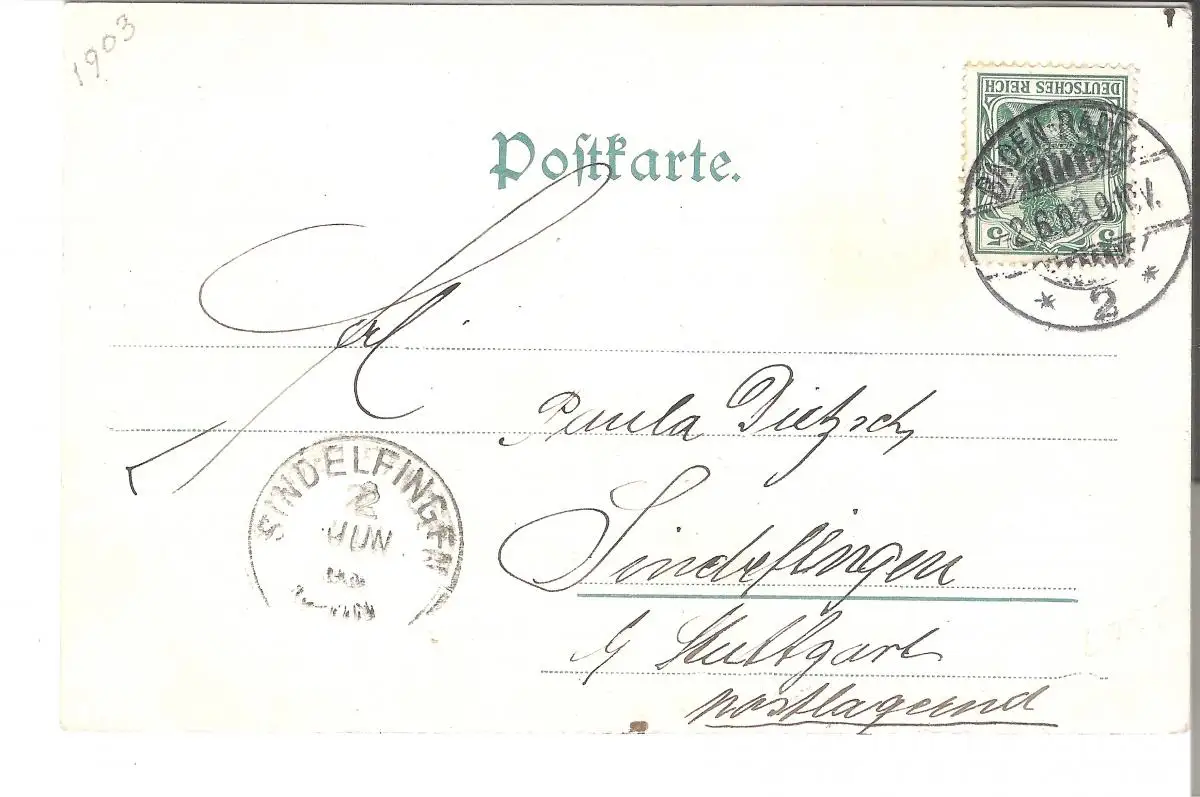 1903
DEUTSCHES REICH
5 5
BADEN-BADEN
2.6.03.9-10V.
* 2 *
Postkarte.
Frl.
Paula Dietzsch
Sindelfingen
b/ Stuttgart
postlagernd
SINDELFINGEN
2
JUN